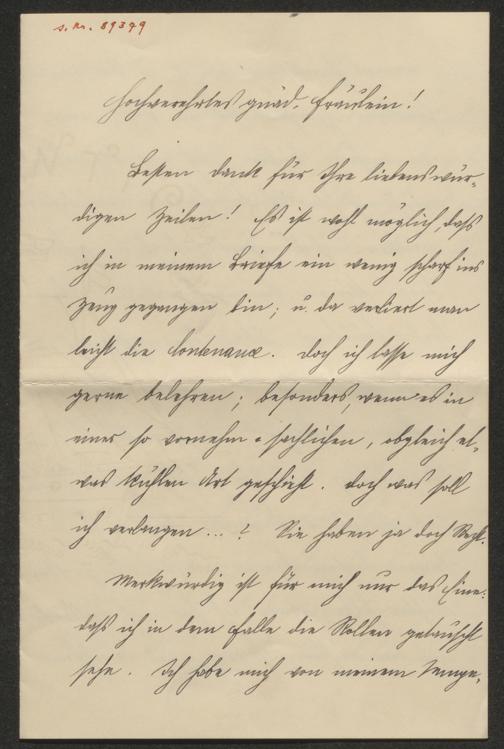 s. Nr. 89399
Hochverehrtes gnäd. Fräulein!
Besten Dank für Ihre liebenswür-
digen Zeilen! Es ist wohl möglich, daß
ich in meinem Briefe ein wenig scharf ins
Zeug gegangen bin; u. da verliert man
leicht die Contenance. Doch ich lasse mich
gerne belehren; besonders, wenn es in
einer so vornehm-sachlichen, obgleich et-
was kühlen Art geschieht. Doch was soll
ich verlangen...? Sie haben ja doch Recht.
Merkwürdig ist für mich nur das Eine:
daß ich in dem Falle die Rollen getauscht
sehe. Ich habe mich von meinem Tempe-